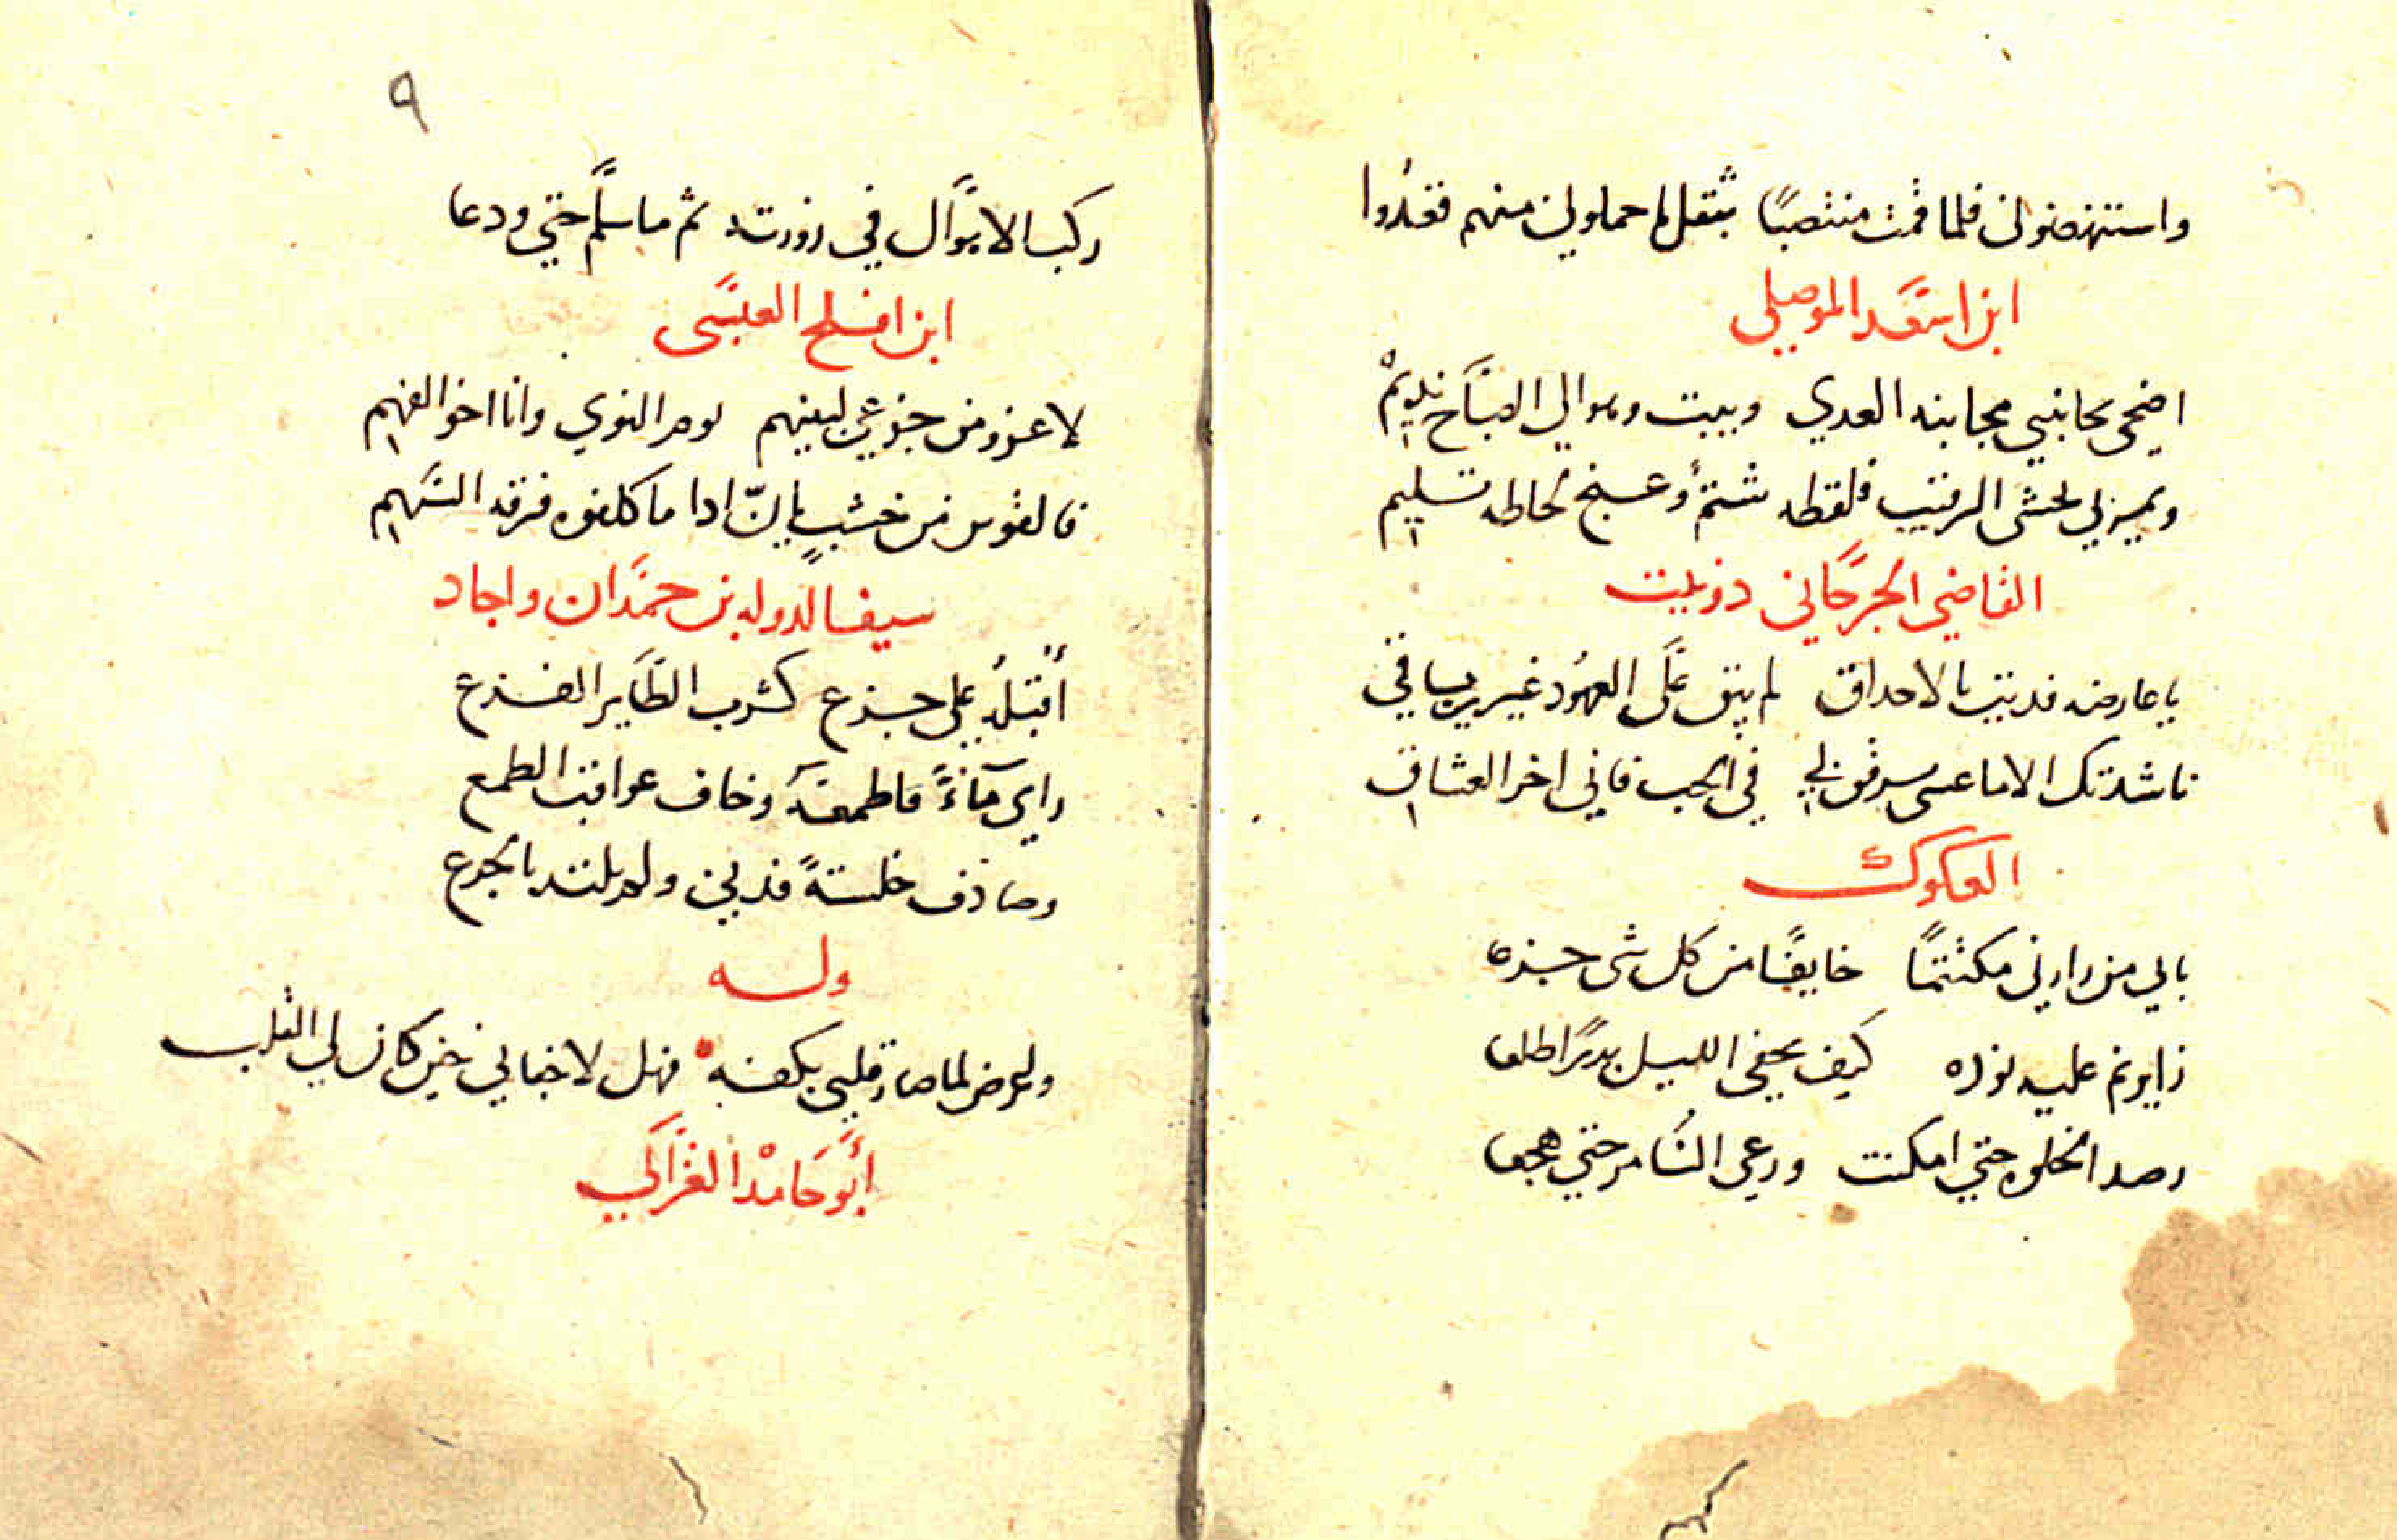 واستنهضونى فلما قمت منتصبًا بثقل ما حملونى منهم قعدُوا
ابن اسَعَد الموصلى
اضحى يجانبنى مجانبه العدي ويبيت وهوالي الصبَاح نديمٌ
ويمر بي يخشى الرقيب فلقطه شتمٌ وغنج لحاظه تسليم
القاضى الجرجَاني دوبيت
يا عارضه فديت بالاحداق لم يبق علَى العهُود غيرى باقي
ناشدتك الاما عسى ترفق بي في الحب فانى اخر العشاق
العكوك
بابي من زارنى مكتتمًا خايفًا من كل شى جزعا
زاير نم عليه نوره كيف يخفى الليل بدرًا طلعا
رصد الخلوه حتي امكنت ورعى السَامر حتي هجعا
٩
ركب الاهوَال في زورته ثم ما سلَّم حتي ودعا
ابن افلح العبسَى
لا غرو من جزعى لبينهم يوم النوي وانا اخو الفهم
فالقوس من خشبٍ يانّ اذا ما كلفوه فرقه السَهم
سيف الدوله بن حمَدان واجاد
اُقبّلُه على جزع كشرب الطَاير الفزع
راى مَآءً فاطمعَه وخاف عواقب الطمع
وصادف خلسةً فدنى ولم يلتذ بالجرع
وله
واعرض لما صار قلبى بكفه فهل لا جفانى حين كان لي القلب
أبَو حَامدْ الغزَالي